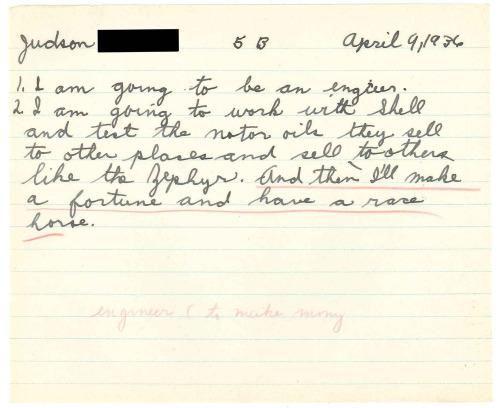 Judson 5B April 9, 1936
1. I am going to be an engieer.
2. I am going to work with Shell
and test the notor oils they sell
to other plases and sell to others
like the Zephyr. And then I'll make
a fortune and have a rase
horse.
engineer ( to make mony